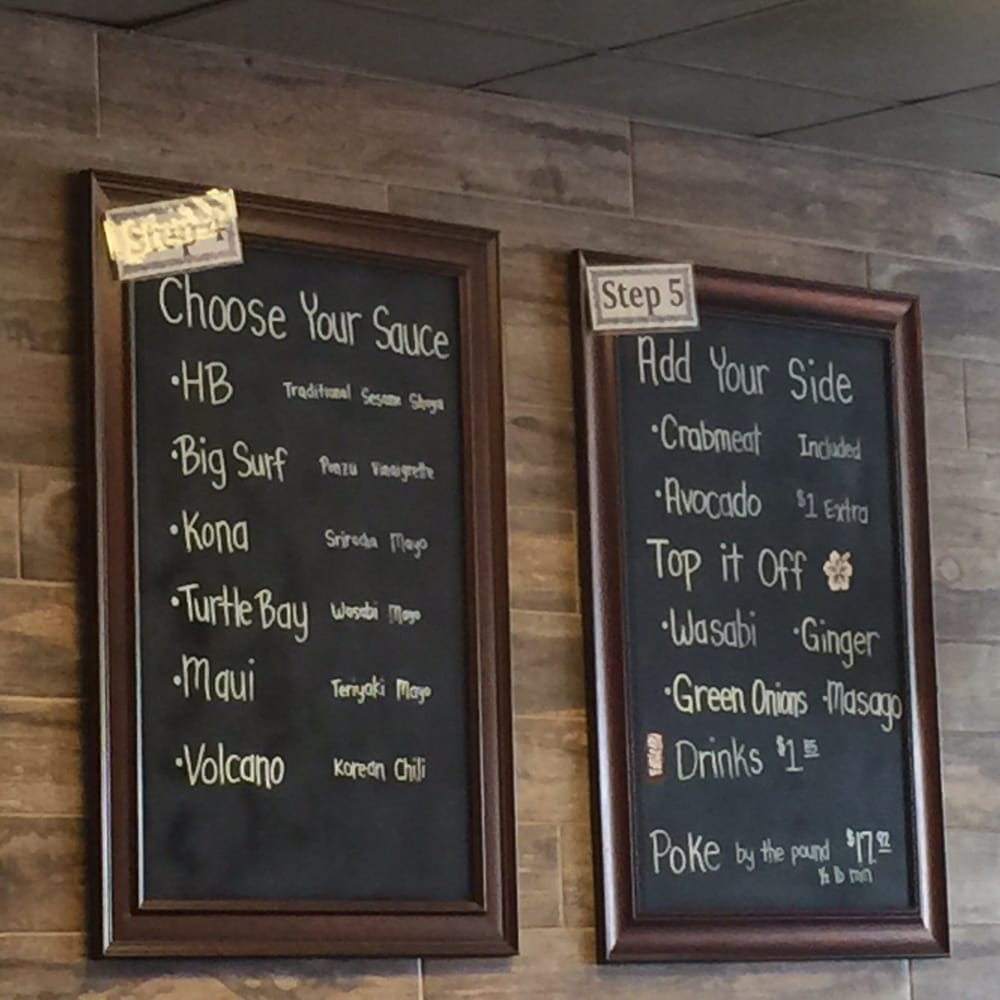 Step 4
Choose Your Sauce
•HB Traditional Sesame Shoyu
•Big Surf Ponzu Vinaigrette
•Kona Sriracha Mayo
•Turtle Bay Wasabi Mayo
•Maui Teriyaki Mayo
•Volcano Korean Chili
Step 5
Add Your Side
•Crabmeat Included
•Avocado $1 Extra
Top it Off
•Wasabi •Ginger
•Green Onions •Masago
Drinks $1.85
Poke by the pound $17.92
½ lb min